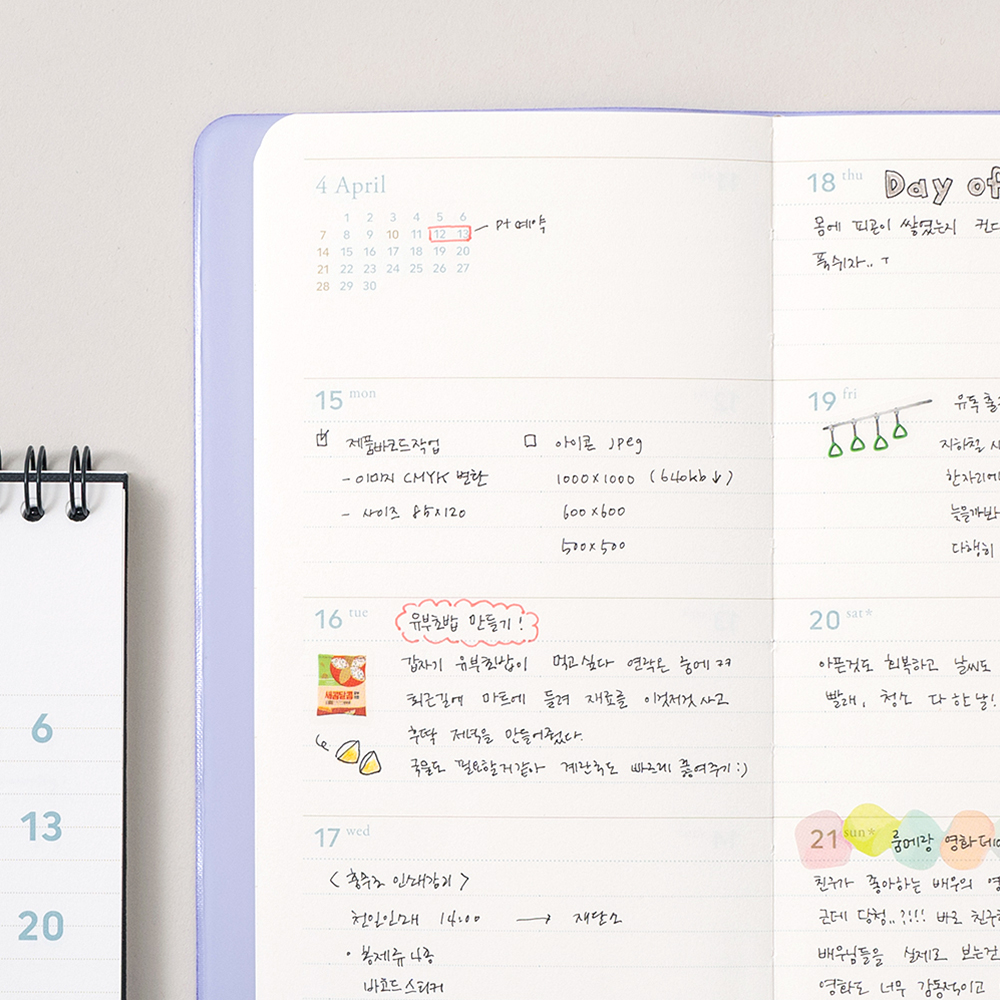 4 April
1 2 3 4 5 6
7 8 9 10 11 12 13
14 15 16 17 18 19 20
21 22 23 24 25 26 27
28 29 30
Pt 예약
15 mon
제품바코드작업
- 이미지 CMYK 변환
- 사이즈 85x120
아이콘 jpeg
1000x1000 (640kb↓)
600x600
500x500
16 tue
유부초밥 만들기!
새콤달콤
갑자기 유부초밥이 먹고싶다 연락온 중에ㅋㅋ
퇴근길에 마트에 들려 재료를 이것저것 사고
후딱 저녁을 만들어줬다.
국물도 필요할거같아 계란국도 빠르게 끓여주기:)
17 wed
<홍주초 인쇄감리>
천일인쇄 14:00 → 재단소
• 봉제류 4종
바코드스티커
18 thu
Day of
몸에 피곤이 쌓였는지 컨디
푹쉬자.. ㅜ
19 fri
유독 출
지하철
한자리에
늦을까봐
다행히
20 sat*
아픈것도 회복하고 날씨도
빨래, 청소 다 한 날!
21 sun*
룸메랑 영화데이
친구가 좋아하는 배우의 영
근데 당첨..?!!! 바로 친구
배우님들을 실제로 보는건
영화도 너무 감동적이고
6
13
20